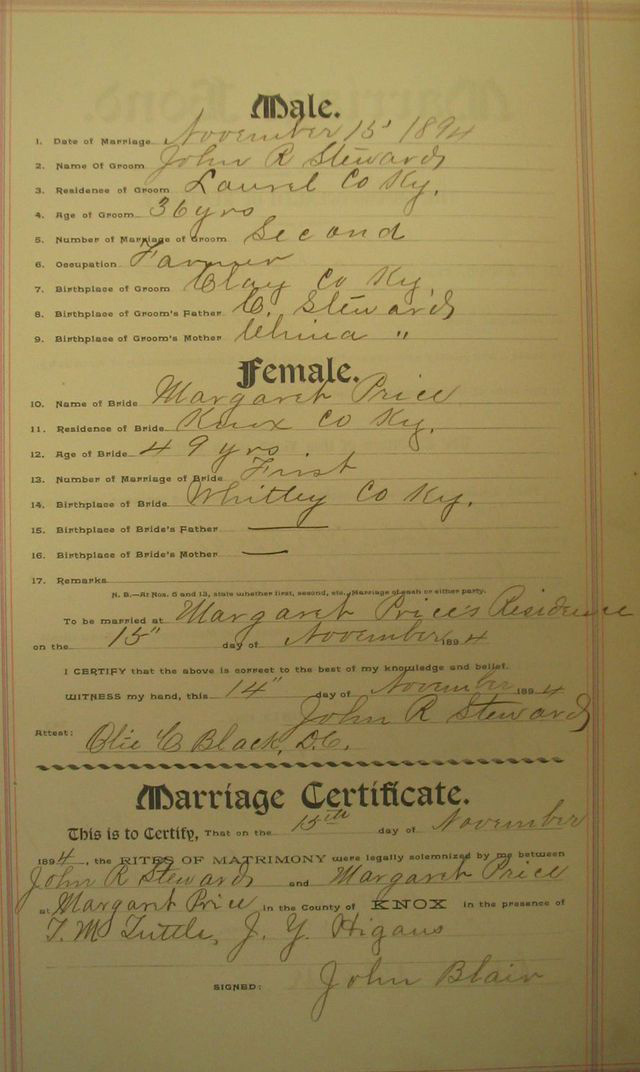 Male.
1. Date of Marriage November 15" 1894
2. Name Of Groom John R Stewards
3. Residence of Groom Laurel Co Ky.
4. Age of Groom 36 yrs
5. Number of Marriage of Groom Second
6. Occupation Farmer
7. Birthplace of Groom Clay Co Ky.
8. Birthplace of Groom's Father C. Stewards
9. Birthplace of Groom's Mother China "
Female.
10. Name of Bride Margaret Price
11. Residence of Bride Knox Co Ky.
12. Age of Bride 49 yrs
13. Number of Marriage of Bride Frist
14. Birthplace of Bride Whitley Co Ky.
15. Birthplace of Bride's Father —
16. Birthplace of Bride's Mother —
17. Remarks
N. B.—At Nos. 5 and 13, state whether first, second, etc., Marriage of each or either party.
To be married at Margaret Price's Residence
on the 15" day of November 1894
I CERTIFY that the above is correct to the best of my knowledge and belief.
WITNESS my hand, this 14" day of November 1894
John R Stewards
Attest: Olie C Black, D.C.
Marriage Certificate.
This is to Certify, THAT on the 15th day of November
1894, the RITES OF MATRIMONY were legally solemnized by me between
John R Stewards and Margaret Price
at Margaret Price in the County of KNOX in the presence of
T. M Tuttle, J. Y. Higans
SIGNED: John Blair